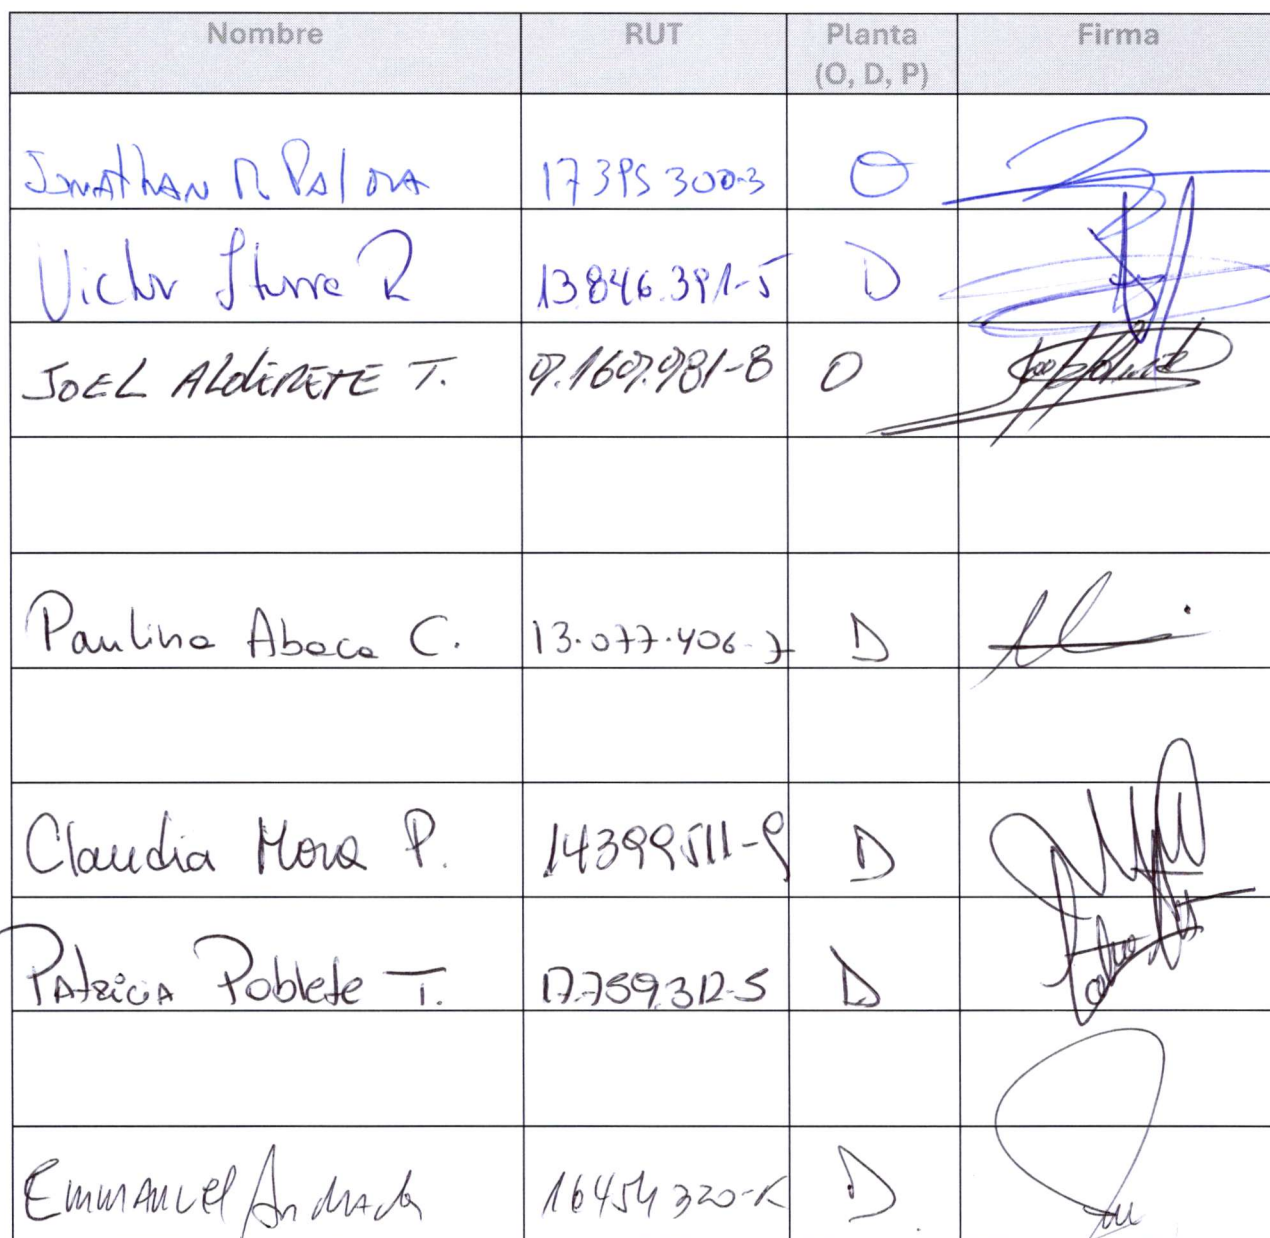 Nombre RUT Planta (O, D, P) Firma
Jonathan R. 17395300-3 O
Victor Iturra R 13846.391-5 D
JOEL ALDERETE T. 9.169.981-8 O
Paulina Abaca C. 13.077.406-7 D
Claudia Mora P. 14399511-9 D
Patricia Poblete T. 17.759.312-5 D
Emmanuel Andrade 16454320-K D